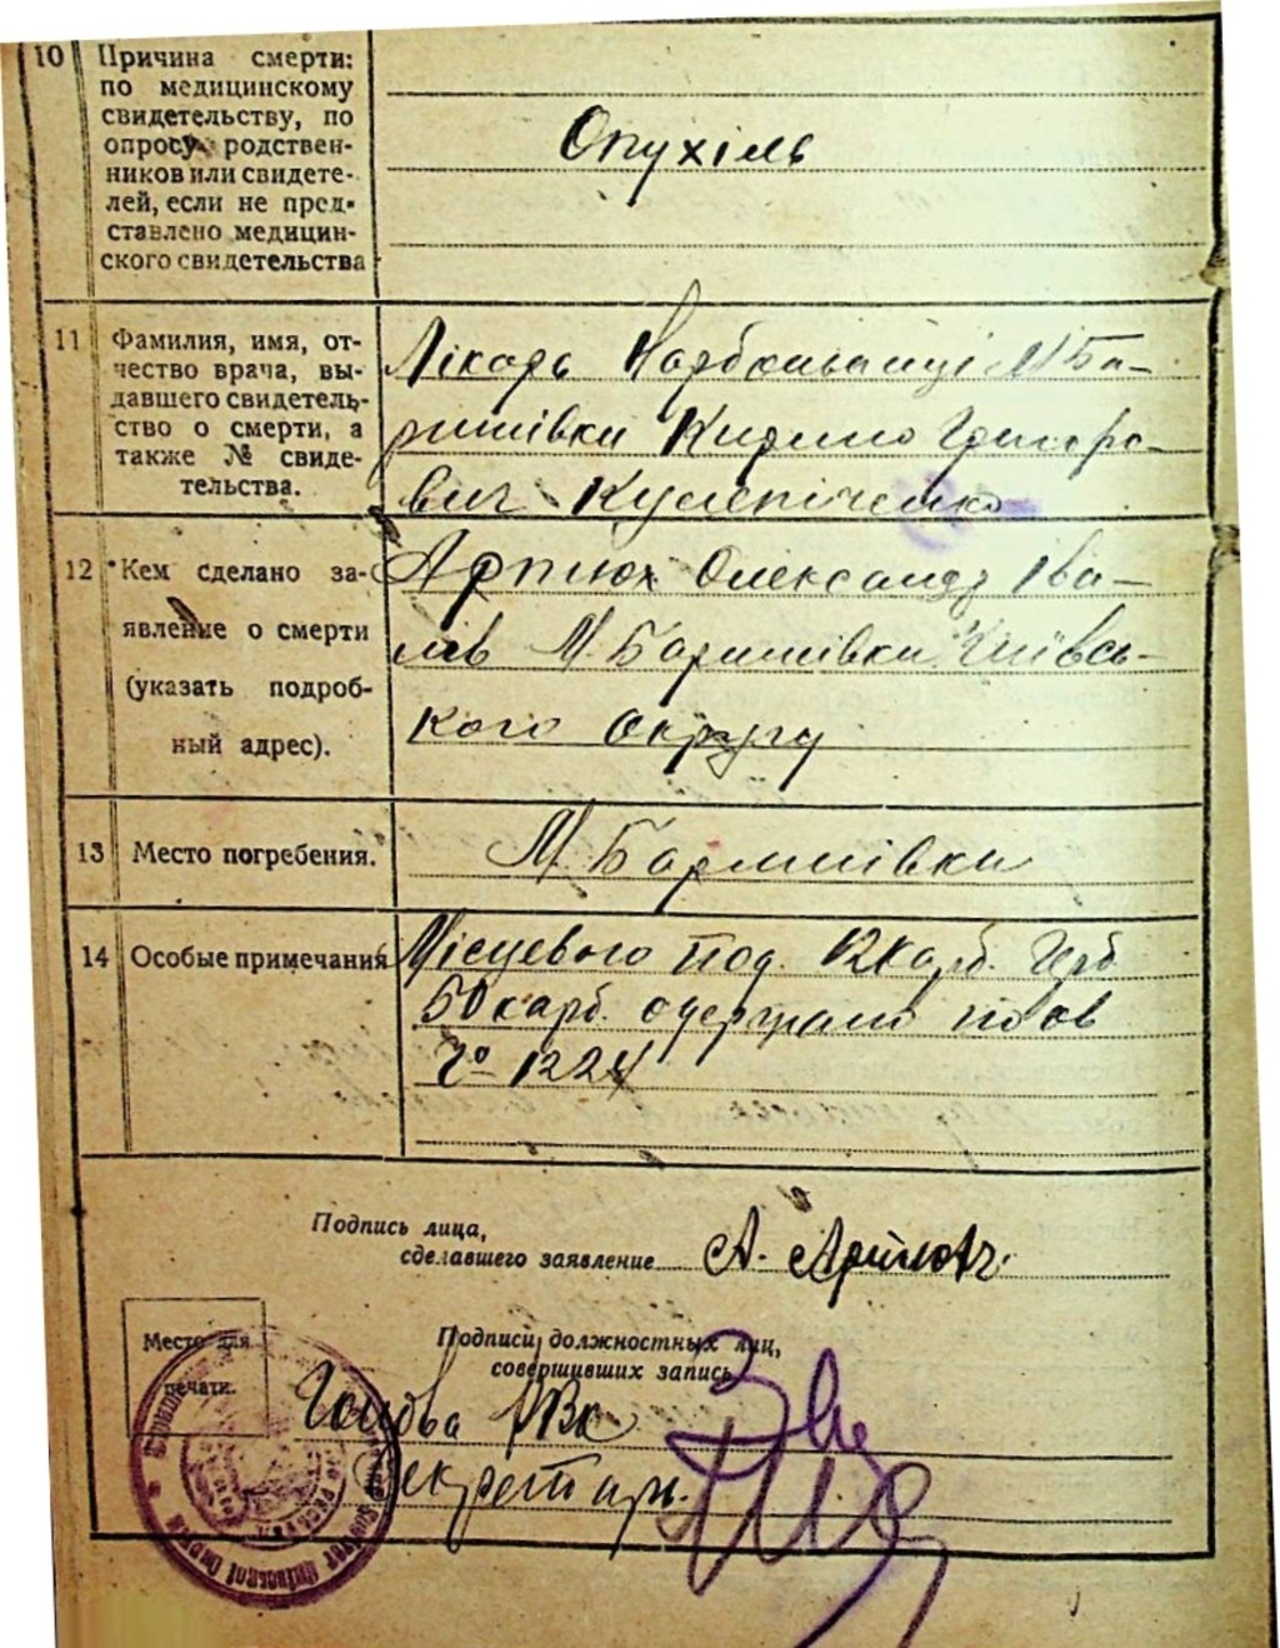 10 Причина смерти:
по медицинскому
свидетельству, по
опросу родствен-
ников или свидете-
лей, если не пред-
ставлено медицин-
ского свидетельства
Опухіль
11 Фамилия, имя, от-
чество врача, вы-
давшего свидетель-
ство о смерти, а
также № свиде-
тельства.
Лікарь М Ба-
ришівки Кирило Григоро-
вич
12 Кем сделано за-
явление о смерти
(указать подроб-
ный адрес).
Артюх Олександр Іва-
нів М. Баришівки Київсь-
кого Округу
13 Место погребения.
М Баришівки
14 Особые примечания
Місцевого под. 12 карб. Герб
50 карб. одержано
1224
Подпись лица,
сделавшего заявление А. Артюх
Место для
печати.
Подписи должностных лиц,
совершивших запись
Голова
Секретарь